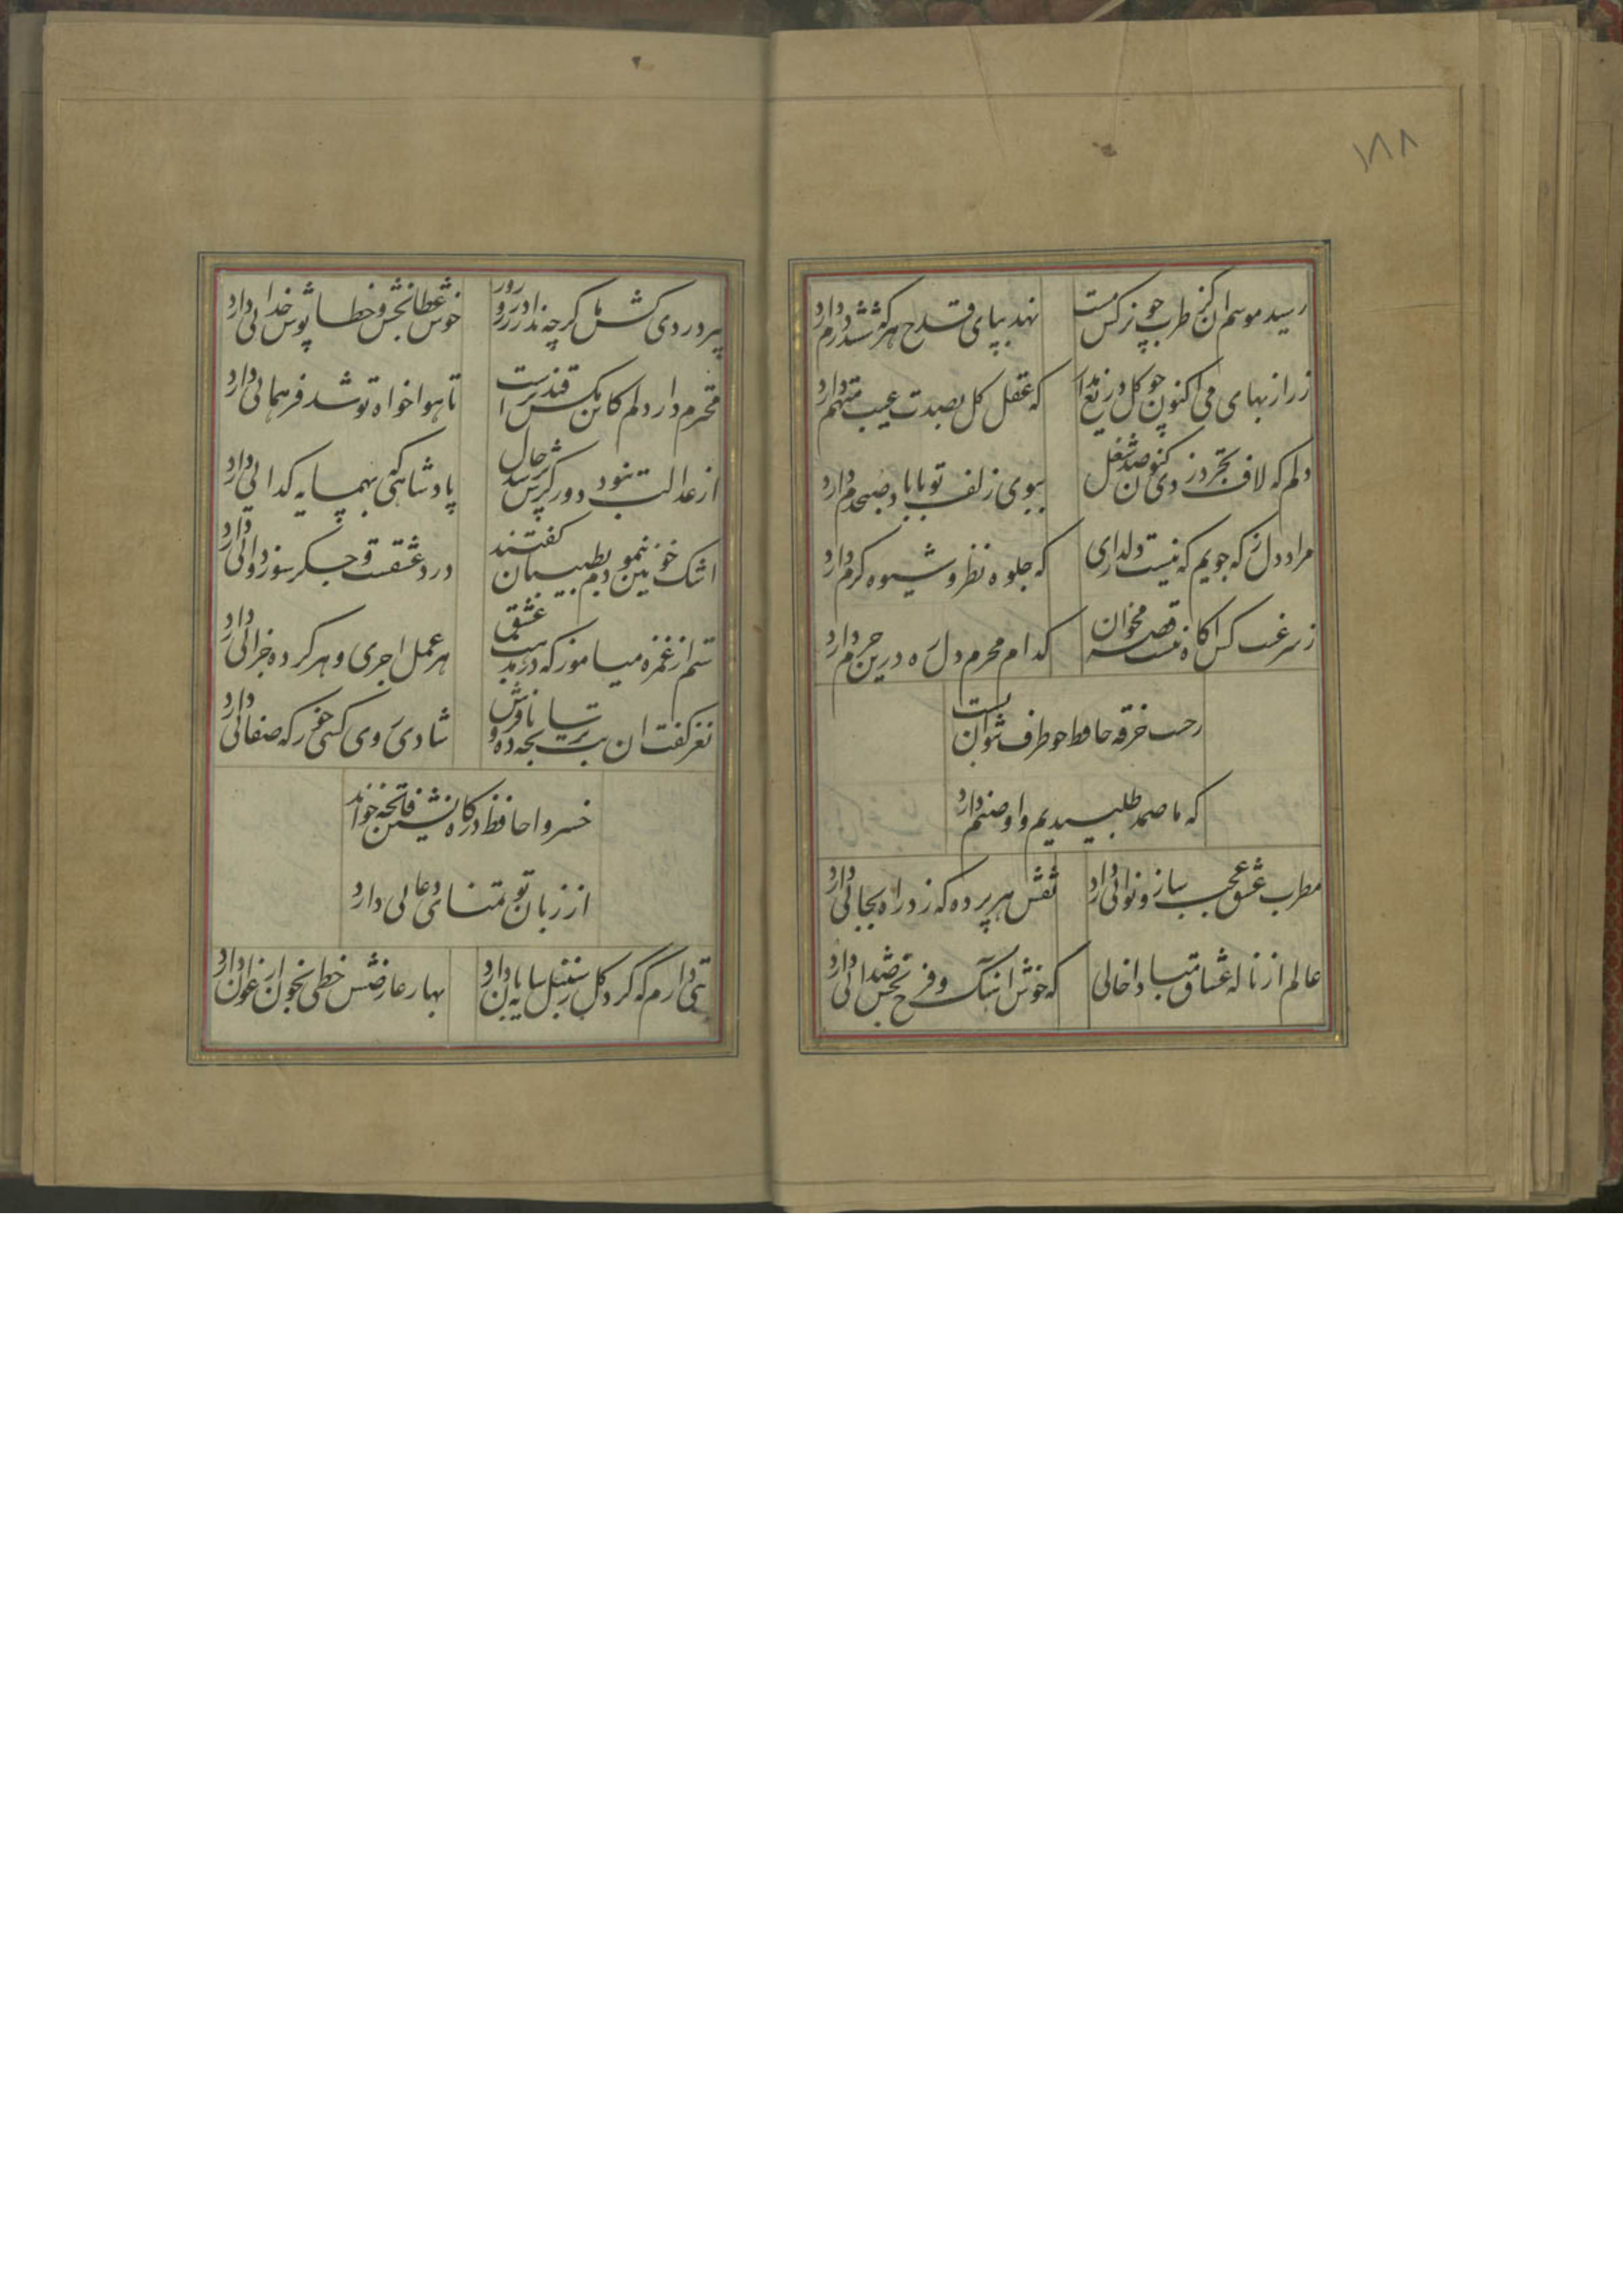 ۱۸۸
رسید موسم ان کز طرب چو نرکس مست
نهد بپای قدح هرکه شش درم دارد
زر از بهای می اکنون چو کل دریغ مدار
که عقل کل بصدت عیب متهم دارد
دلم که لاف تجرد زدی کنون صد شغل
ببوی زلف تو با باد صبحدم دارد
مراد دل ز که جویم که نیست دلداری
که جلوه نظر و شیوه کرم دارد
ز سر غیب کس اکاه نیست قصه مخوان
کدام محرم دل ره درین حرم دارد
ز جیب خرقه حافظ چو طرف بتوان بست
که ما صمد طلبیدیم و او صنم دارد
مطرب عشق عجب ساز و نوائی دارد
نقش هر پرده که زد راه بجائی دارد
عالم از ناله عشاق مبادا خالی
که خوش اهنک و فرح بخش صدائی دارد
پیر دردی کش ما کرچه ندارد زر و زور
خوش عطابخش و خطاپوش خدائی دارد
محترم دار دلم کاین مکس قندپرست
تا هواخواه تو شد فر همائی دارد
از عدالت نبود دور کرش پرسد حال
پادشاهی که بهمسایه کدائی دارد
اشک خونین بنمودم بطبیبان کفتند
درد عشقست و جکرسوز دوائی دارد
ستم از غمزه میاموز که در مذهب عشق
هر عمل اجری و هر کرده جزائی دارد
نغز کفت ان بت ترسابچه باده فروش
شادی روی کسی خور که صفائی دارد
خسروا حافظ درکاه نشین فاتحه خواند
از زبان تو تمنای دعائی دارد
بتی دارم که کرد کل ز سنبل سایه‌بان دارد
بهار عارضش خطی بخون ارغوان دارد